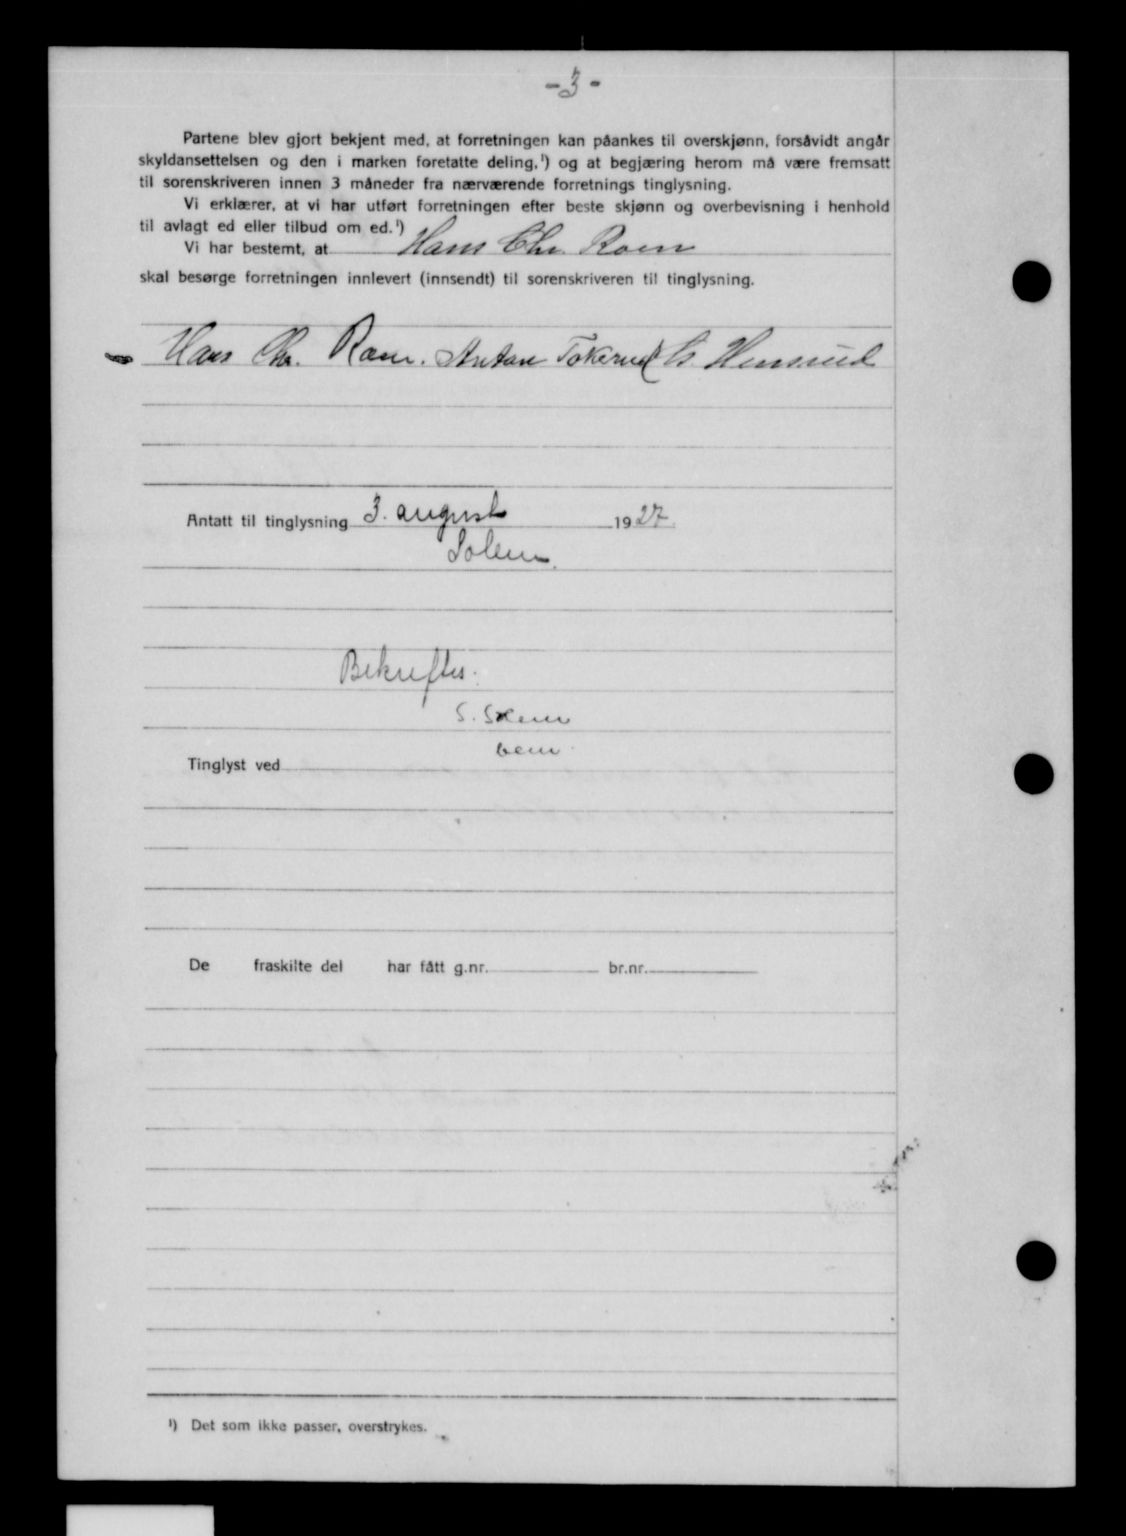 -3-
Partene blev gjort bekjent med, at forretningen kan påankes til overskjønn, forsåvidt angår
skyldansettelsen og den i marken foretatte deling,¹) og at begjæring herom må være fremsatt
til sorenskriveren innen 3 måneder fra nærværende forretnings tinglysning.
Vi erklærer, at vi har utført forretningen efter beste skjønn og overbevisning i henhold
til avlagt ed eller tilbud om ed.¹)
Vi har bestemt, at Hans Chr. Roen
skal besørge forretningen innlevert (innsendt) til sorenskriveren til tinglysning.
Hans Chr. Roen. Anton Tokerud
Antatt til tinglysning 3. august 1927.
Solem.
Bekreftes.
Tinglyst ved
De fraskilte del har fått g.nr. br.nr.
¹) Det som ikke passer, overstrykes.